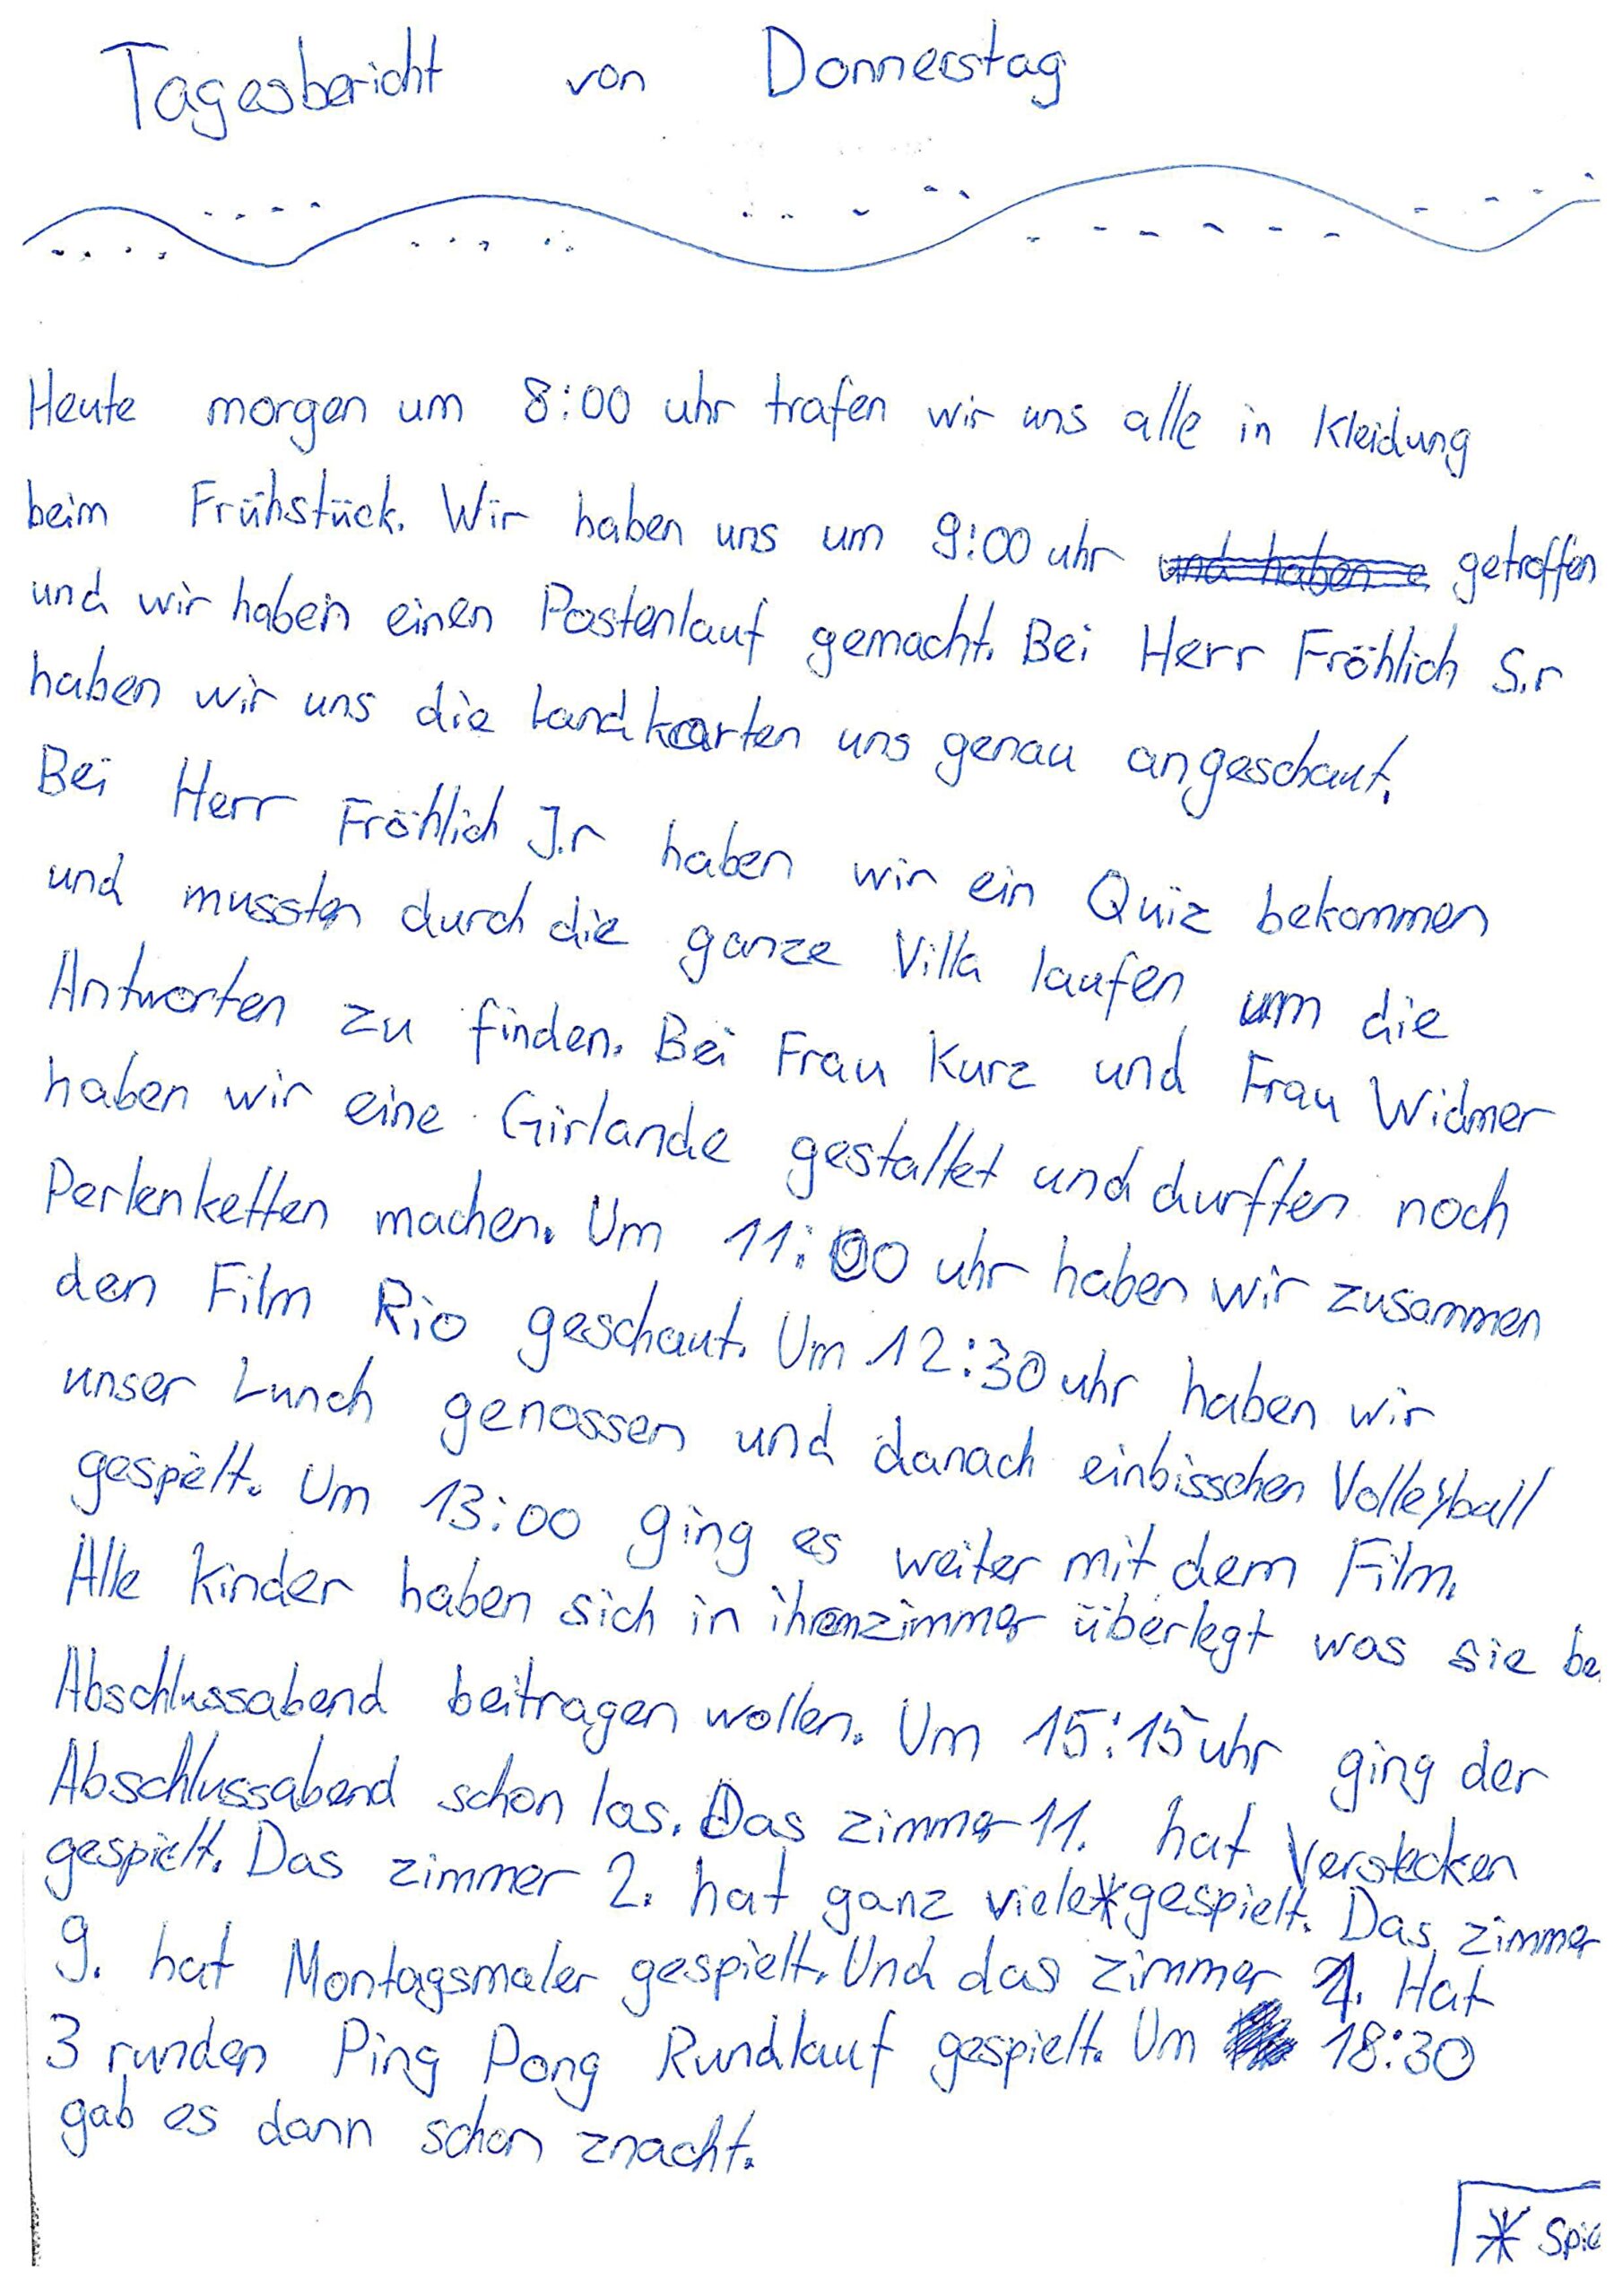 Tagesbericht von Donnerstag
Heute morgen um 8:00 uhr trafen wir uns alle in Kleidung
beim Frühstück. Wir haben uns um 9:00 uhr und haben e getroffen
und wir haben einen Postenlauf gemacht. Bei Herr Fröhlich S.r
haben wir uns die Landkarten uns genau angeschaut.
Bei Herr Fröhlich J.r haben wir ein Quiz bekommen
und mussten durch die ganze Villa laufen um die
Antworten zu finden. Bei Frau Kurz und Frau Widmer
haben wir eine Girlande gestaltet und durften noch
Perlenketten machen. Um 11:00 uhr haben wir zusammen
den Film Rio geschaut. Um 12:30 uhr haben wir
unser Lunch genossen und danach einbisschen Volleyball
gespielt. Um 13:00 ging es weiter mit dem Film.
Alle Kinder haben sich in ihrenzimmer überlegt was sie be
Abschlussabend beitragen wollen. Um 15:15 uhr ging der
Abschlussabend schon los. Das zimmer 11. hat Verstecken
gespielt. Das zimmer 2. hat ganz viele*gespielt. Das zimmer
9. hat Montagsmaler gespielt. Und das zimmer 1. Hat
3 runden Ping Pong Rundlauf gespielt. Um 18:30
gab es dann schon znacht.
* Spie